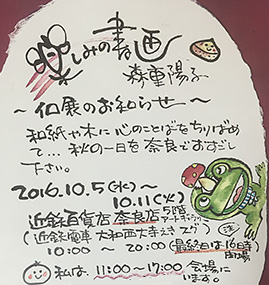 楽しみの書画
森重陽子
〜個展のお知らせ〜
和紙や木に心のことばをちりばめ
て…秋の一日を奈良ですごし
下さい。
2016.10.5(水)〜
10.11(火)
近鉄百貨店 奈良店 5階
(近鉄電車 大和西大寺駅 スグ)
10:00 〜 20:00 (最終日は16時
閉場)
私は、11:00〜17:00 会場に
います。